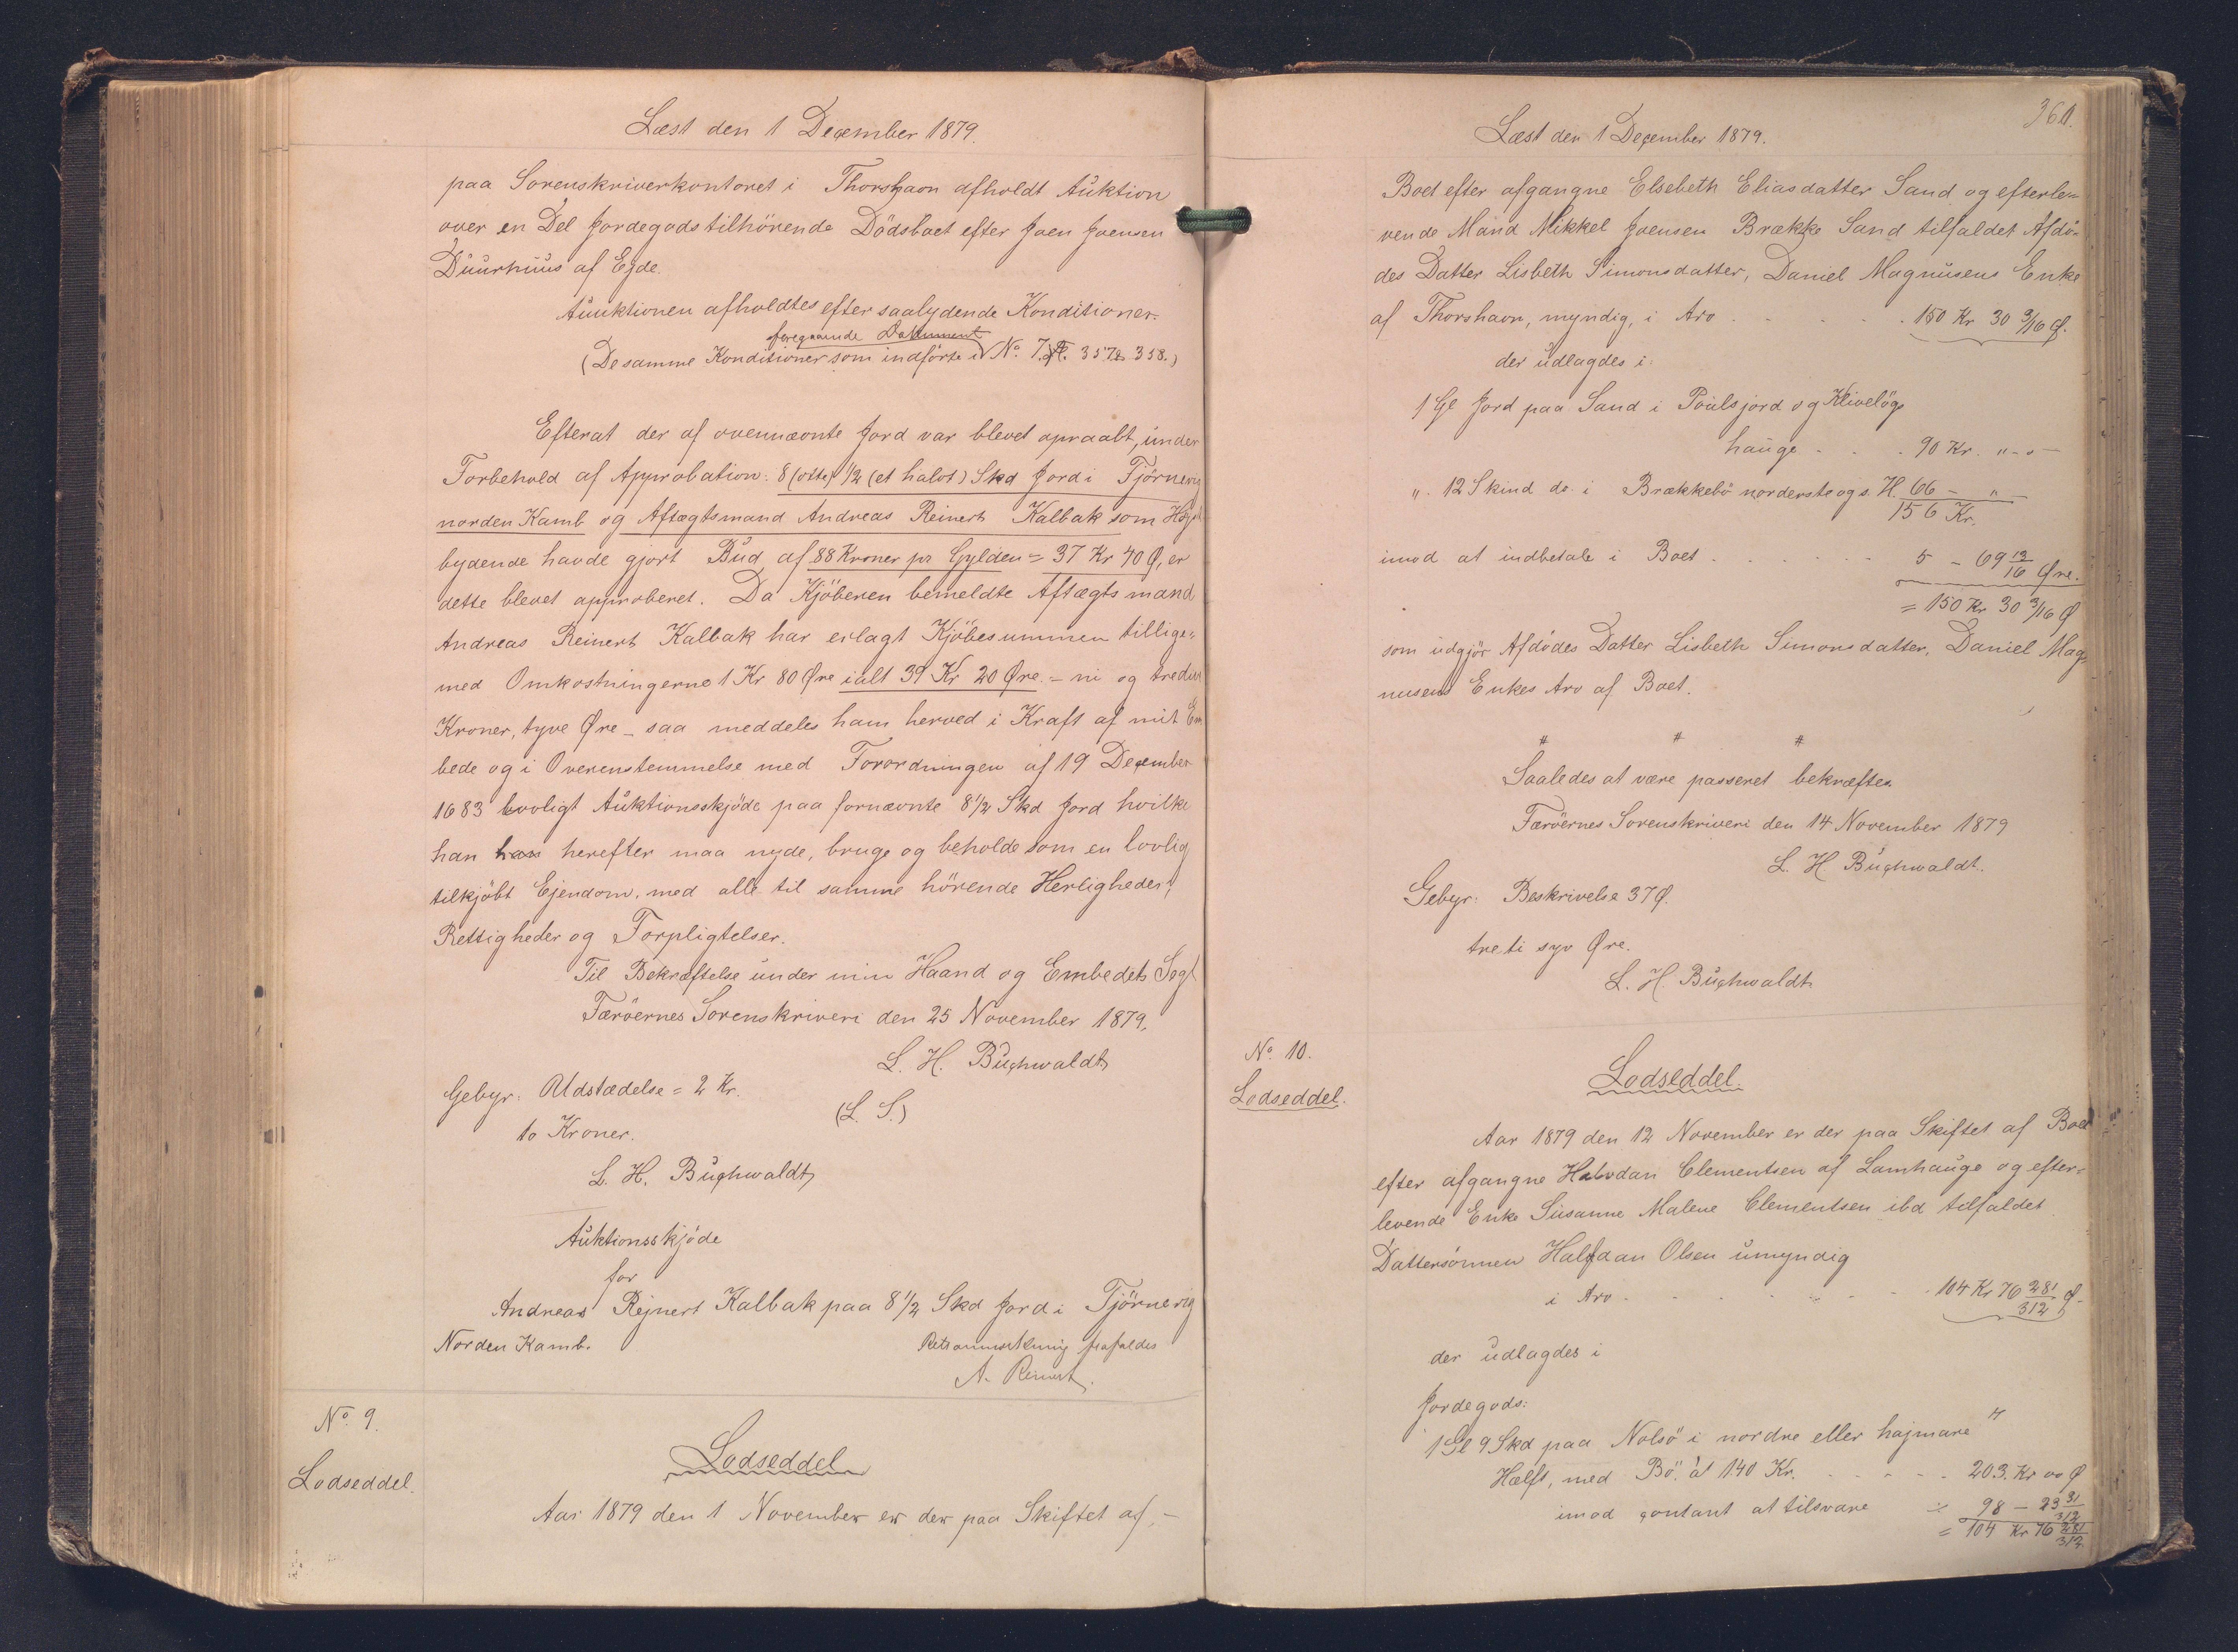 Læst den 1 December 1879.
paa Sorenskriverkontoret i Thorshavn afholdt Auktion
over en Del Jordegods tilhörende Dödsboet efter Joen Joensen
Duurhuus af Ejde.
Auktionen afholdtes efter saalydende Konditioner.
foregaaende Dokument
(De samme Konditioner som indförte i No. 7. Fl. 357 & 358.)
Efterat der af ovennævnte Jord var blevet opraabt, under
Forbehold af Approbation: 8 (otte) 1/2 (et halvt) Skd Jord i Tjörnevig
norden Kamb og Aftægtsmand Andreas Reinert Kalbak som Högst
bydende havde gjort Bud af 88 Kroner pr Gylden = 37 Kr 40 Ø, er
dette blevet approberet. Da Kjöberen bemeldte Aftægtsmand
Andreas Reinert Kalbak har erlagt Kjöbesummen tillige=
med Omkostningerne 1 Kr 80 Øre ialt 39 Kr 20 Øre. - ni og tredive
Kroner, tyve Øre - saa meddeles ham herved i Kraft af mit Em
bede og i Overenstemmelse med Forordningen af 19 December
1683 lovligt Auktionsskjöde paa fornævnte 8 1/2 Skd Jord hvilke
han han herefter maa nyde, bruge og beholde som en lovlig
tilkjöbt Ejendom, med alle til samme hörende Herligheder,
Rettigheder og Forpligtelser.
Til Bekræftelse under min Haand og Embedets Segl
Færöernes Sorenskriveri den 25 November 1879.
L. H. Buchwaldt
Gebyr: Udstædelse = 2 Kr.
(L. S.)
to Kroner.
L. H. Buchwaldt
Auktionsskjöde
for
Andreas Rejnert Kalbak paa 8 1/2 Skd Jord i Tjörnevig
Norden Kamb.
Retsanmærkning frafaldes
A. Reinert.
No. 9.
Lodseddel.
Lodseddel
Aar 1879 den 1 November er der paa Skiftet af -
360.
Læst den 1 December 1879.
Boet efter afgangne Elsebeth Eliasdatter Sand og efterle=
vende Mand Mikkel Joensen Brække Sand tilfaldet Afdö=
des Datter Lisbeth Simonsdatter, Daniel Magnusens Enke
af Thorshavn, myndig, i Arv . . . 150 Kr 30 3/16 Ø.
der udlagdes i:
1 Gl Jord paa Sand i Poulsjord og Klivelögs
hauge . . . 90 Kr. " - " -
". 12 Skind do. i Brækkebö norderste ogs. H. 66 - " -
156 Kr.
imod at indbetale i Boet . . . 5 - 69 13/16 Øre.
= 150 Kr 30 3/16 Ø
som udgjör Afdödes Datter Lisbeth Simonsdatter, Daniel Mag=
nusens Enkes Arv af Boet.
# # #
Saaledes at være passeret bekræftes.
Færöernes Sorenskriveri den 14 November 1879
L. H Buchwaldt.
Gebyr: Beskrivelse 37 Ø.
treti syv Øre.
L. H. Buchwaldt
No. 10.
Lodseddel.
Lodseddel.
Aar 1879 den 12 November er der paa Skiftet af Boet
efter afgangne Halvdan Clementsen af Lamhauge og efter=
levende Enke Susanne Malene Clementsen ibd tilfaldet
Dattersönnen Halfdan Olsen umyndig
i Arv . . . 104 Kr 76 281/312 Ø.
der udlagdes i
Jordegods:
1 Gl 9 Skd paa Nolsö i nordre eller hajmare
Hælft, med Bö. at 140 Kr. . . . 203. Kr oo Ø
imod contant at tilsvare ÷ 98 - 23 31/312
= 104 Kr 76 281/312